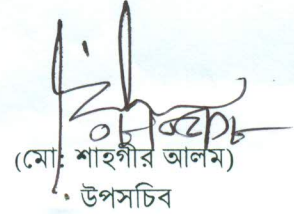 (মো: শাহগীর আলম)
উপসচিব